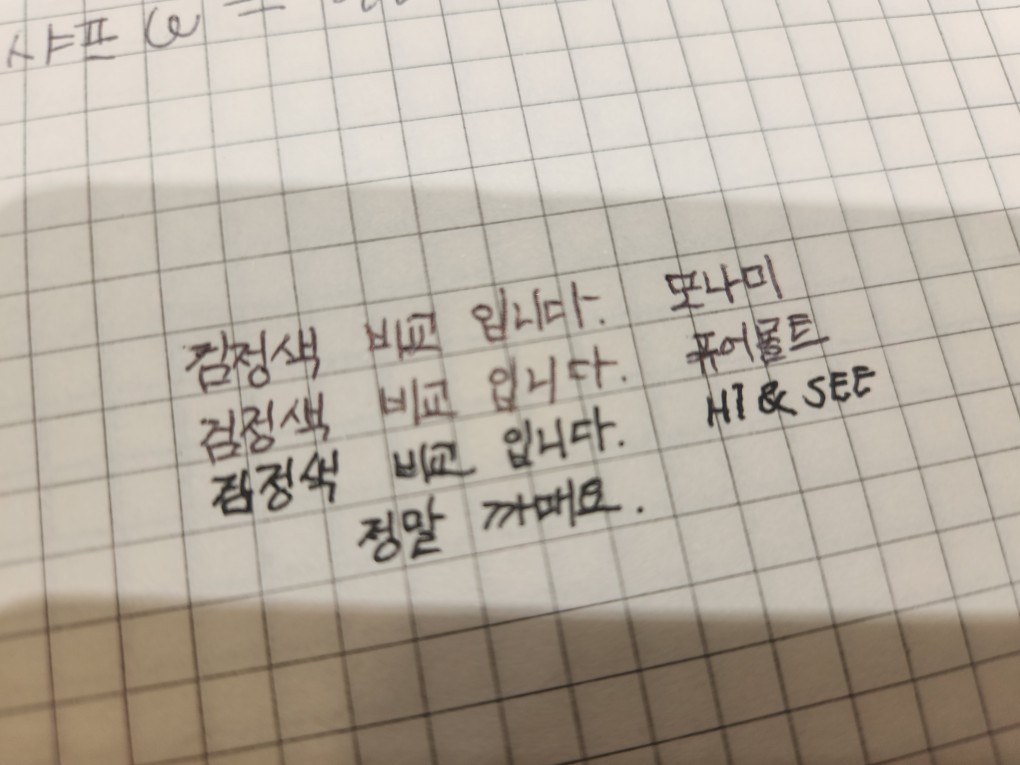 샤프
검정색 비교 입니다. 모나미
검정색 비교 입니다. 퓨어몰트
검정색 비교 입니다. HI & SEE
정말 까매요.